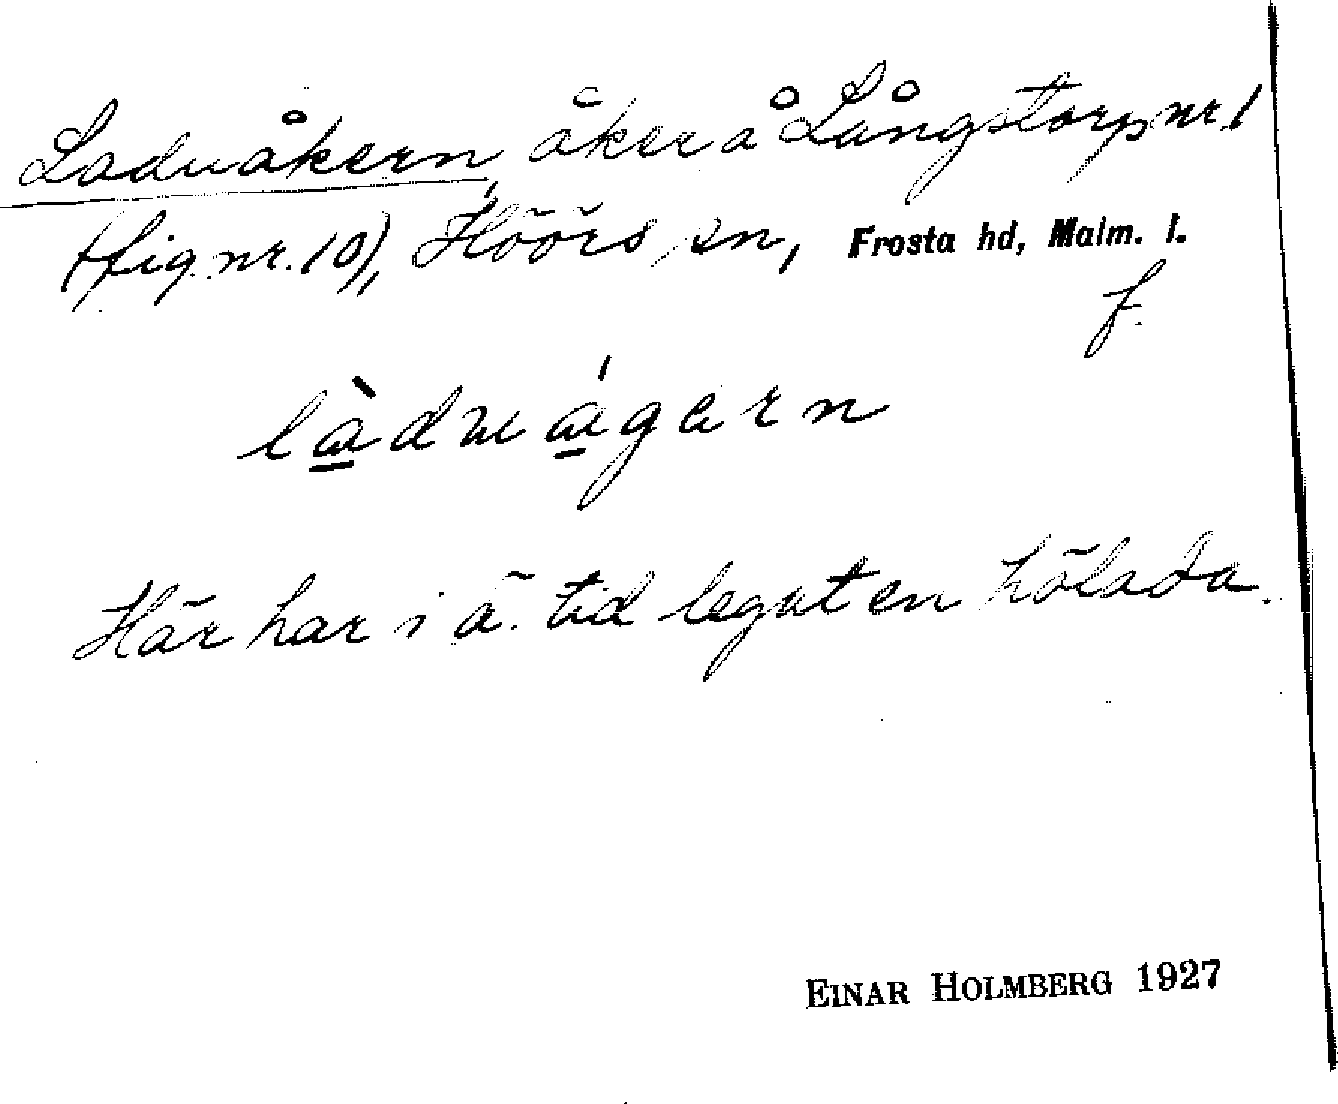 Laduåkern, åker å Långstorp nr. 1
(fig. nr. 10), Höörs sn, Frosta hd, Malm. l.
f.
làduágern
Här har i ä. tid legat en hölada.
EINAR HOLMBERG 1927